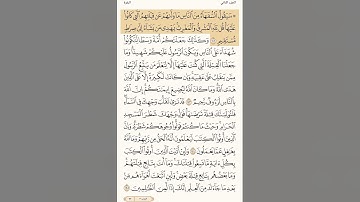 الجزء الثاني البقرة
۞ سَيَقُولُ ٱلسُّفَهَآءُ مِنَ ٱلنَّاسِ مَا وَلَّىٰهُمْ عَن قِبْلَتِهِمُ ٱلَّتِي كَانُوا۟
عَلَيْهَا قُل لِّلَّهِ ٱلْمَشْرِقُ وَٱلْمَغْرِبُ يَهْدِي مَن يَشَآءُ إِلَىٰ صِرَٰطٍ
مُّسْتَقِيمٍ ١٤٢ وَكَذَٰلِكَ جَعَلْنَٰكُمْ أُمَّةً وَسَطًا لِّتَكُونُوا۟
شُهَدَآءَ عَلَى ٱلنَّاسِ وَيَكُونَ ٱلرَّسُولُ عَلَيْكُمْ شَهِيدًا وَمَا
جَعَلْنَا ٱلْقِبْلَةَ ٱلَّتِي كُنتَ عَلَيْهَآ إِلَّا لِنَعْلَمَ مَن يَتَّبِعُ ٱلرَّسُولَ
مِمَّن يَنقَلِبُ عَلَىٰ عَقِبَيْهِ وَإِن كَانَتْ لَكَبِيرَةً إِلَّا عَلَى ٱلَّذِينَ
هَدَى ٱللَّهُ وَمَا كَانَ ٱللَّهُ لِيُضِيعَ إِيمَٰنَكُمْ إِنَّ ٱللَّهَ
بِٱلنَّاسِ لَرَءُوفٌ رَّحِيمٌ ١٤٣ قَدْ نَرَىٰ تَقَلُّبَ وَجْهِكَ فِي ٱلسَّمَآءِ
فَلَنُوَلِّيَنَّكَ قِبْلَةً تَرْضَىٰهَا فَوَلِّ وَجْهَكَ شَطْرَ ٱلْمَسْجِدِ
ٱلْحَرَامِ وَحَيْثُ مَا كُنتُمْ فَوَلُّوا۟ وُجُوهَكُمْ شَطْرَهُۥ وَإِنَّ
ٱلَّذِينَ أُوتُوا۟ ٱلْكِتَٰبَ لَيَعْلَمُونَ أَنَّهُ ٱلْحَقُّ مِن رَّبِّهِمْ وَمَا ٱللَّهُ
بِغَٰفِلٍ عَمَّا يَعْمَلُونَ ١٤٤ وَلَئِنْ أَتَيْتَ ٱلَّذِينَ أُوتُوا۟ ٱلْكِتَٰبَ
بِكُلِّ ءَايَةٍ مَّا تَبِعُوا۟ قِبْلَتَكَ وَمَآ أَنتَ بِتَابِعٍ قِبْلَتَهُمْ
وَمَا بَعْضُهُم بِتَابِعٍ قِبْلَةَ بَعْضٍ وَلَئِنِ ٱتَّبَعْتَ أَهْوَآءَهُم مِّنۢ
بَعْدِ مَا جَآءَكَ مِنَ ٱلْعِلْمِ إِنَّكَ إِذًا لَّمِنَ ٱلظَّٰلِمِينَ ١٤٥